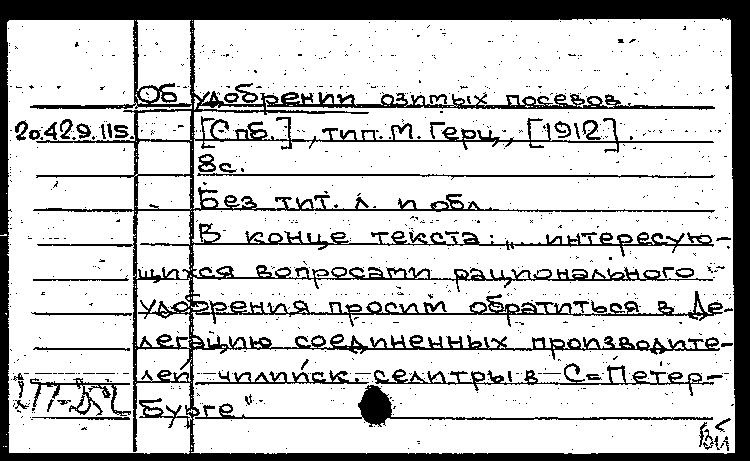 Об удобрении озимых посевов
20.429.115. [Спб.], тип. М. Герц, [1912].
8с.
Без тит. л. и обл.
В конце текста: „... интересую-
щихся вопросами рационального
удобрения просим обратиться в Де-
легацию соединенных производите-
лей чилийск. селитры в С=Петер-
бурге."